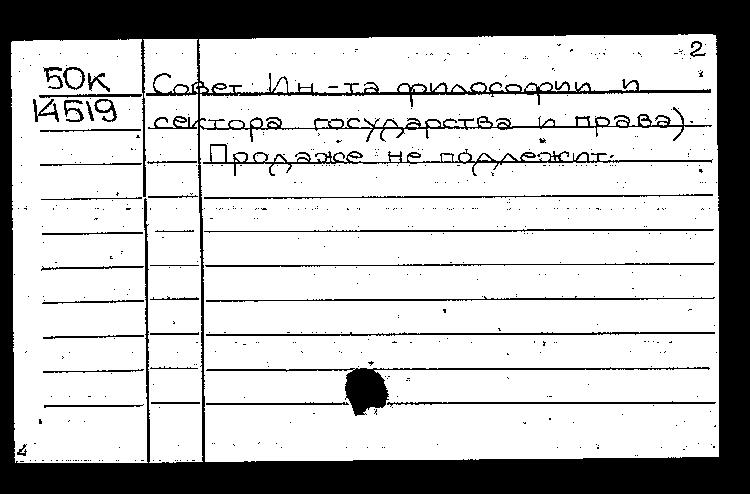 2
50К Совет Ин.-та философии и
14519 сектора государства и права).
Продаже не подлежит.
4